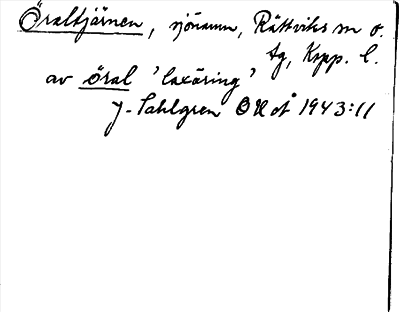 Öraltjärnen, sjönamn, Rättviks sn o.
tg, Kopp. l.
av öral 'laxöring'
J. Sahlgren OUÅ 1943:11